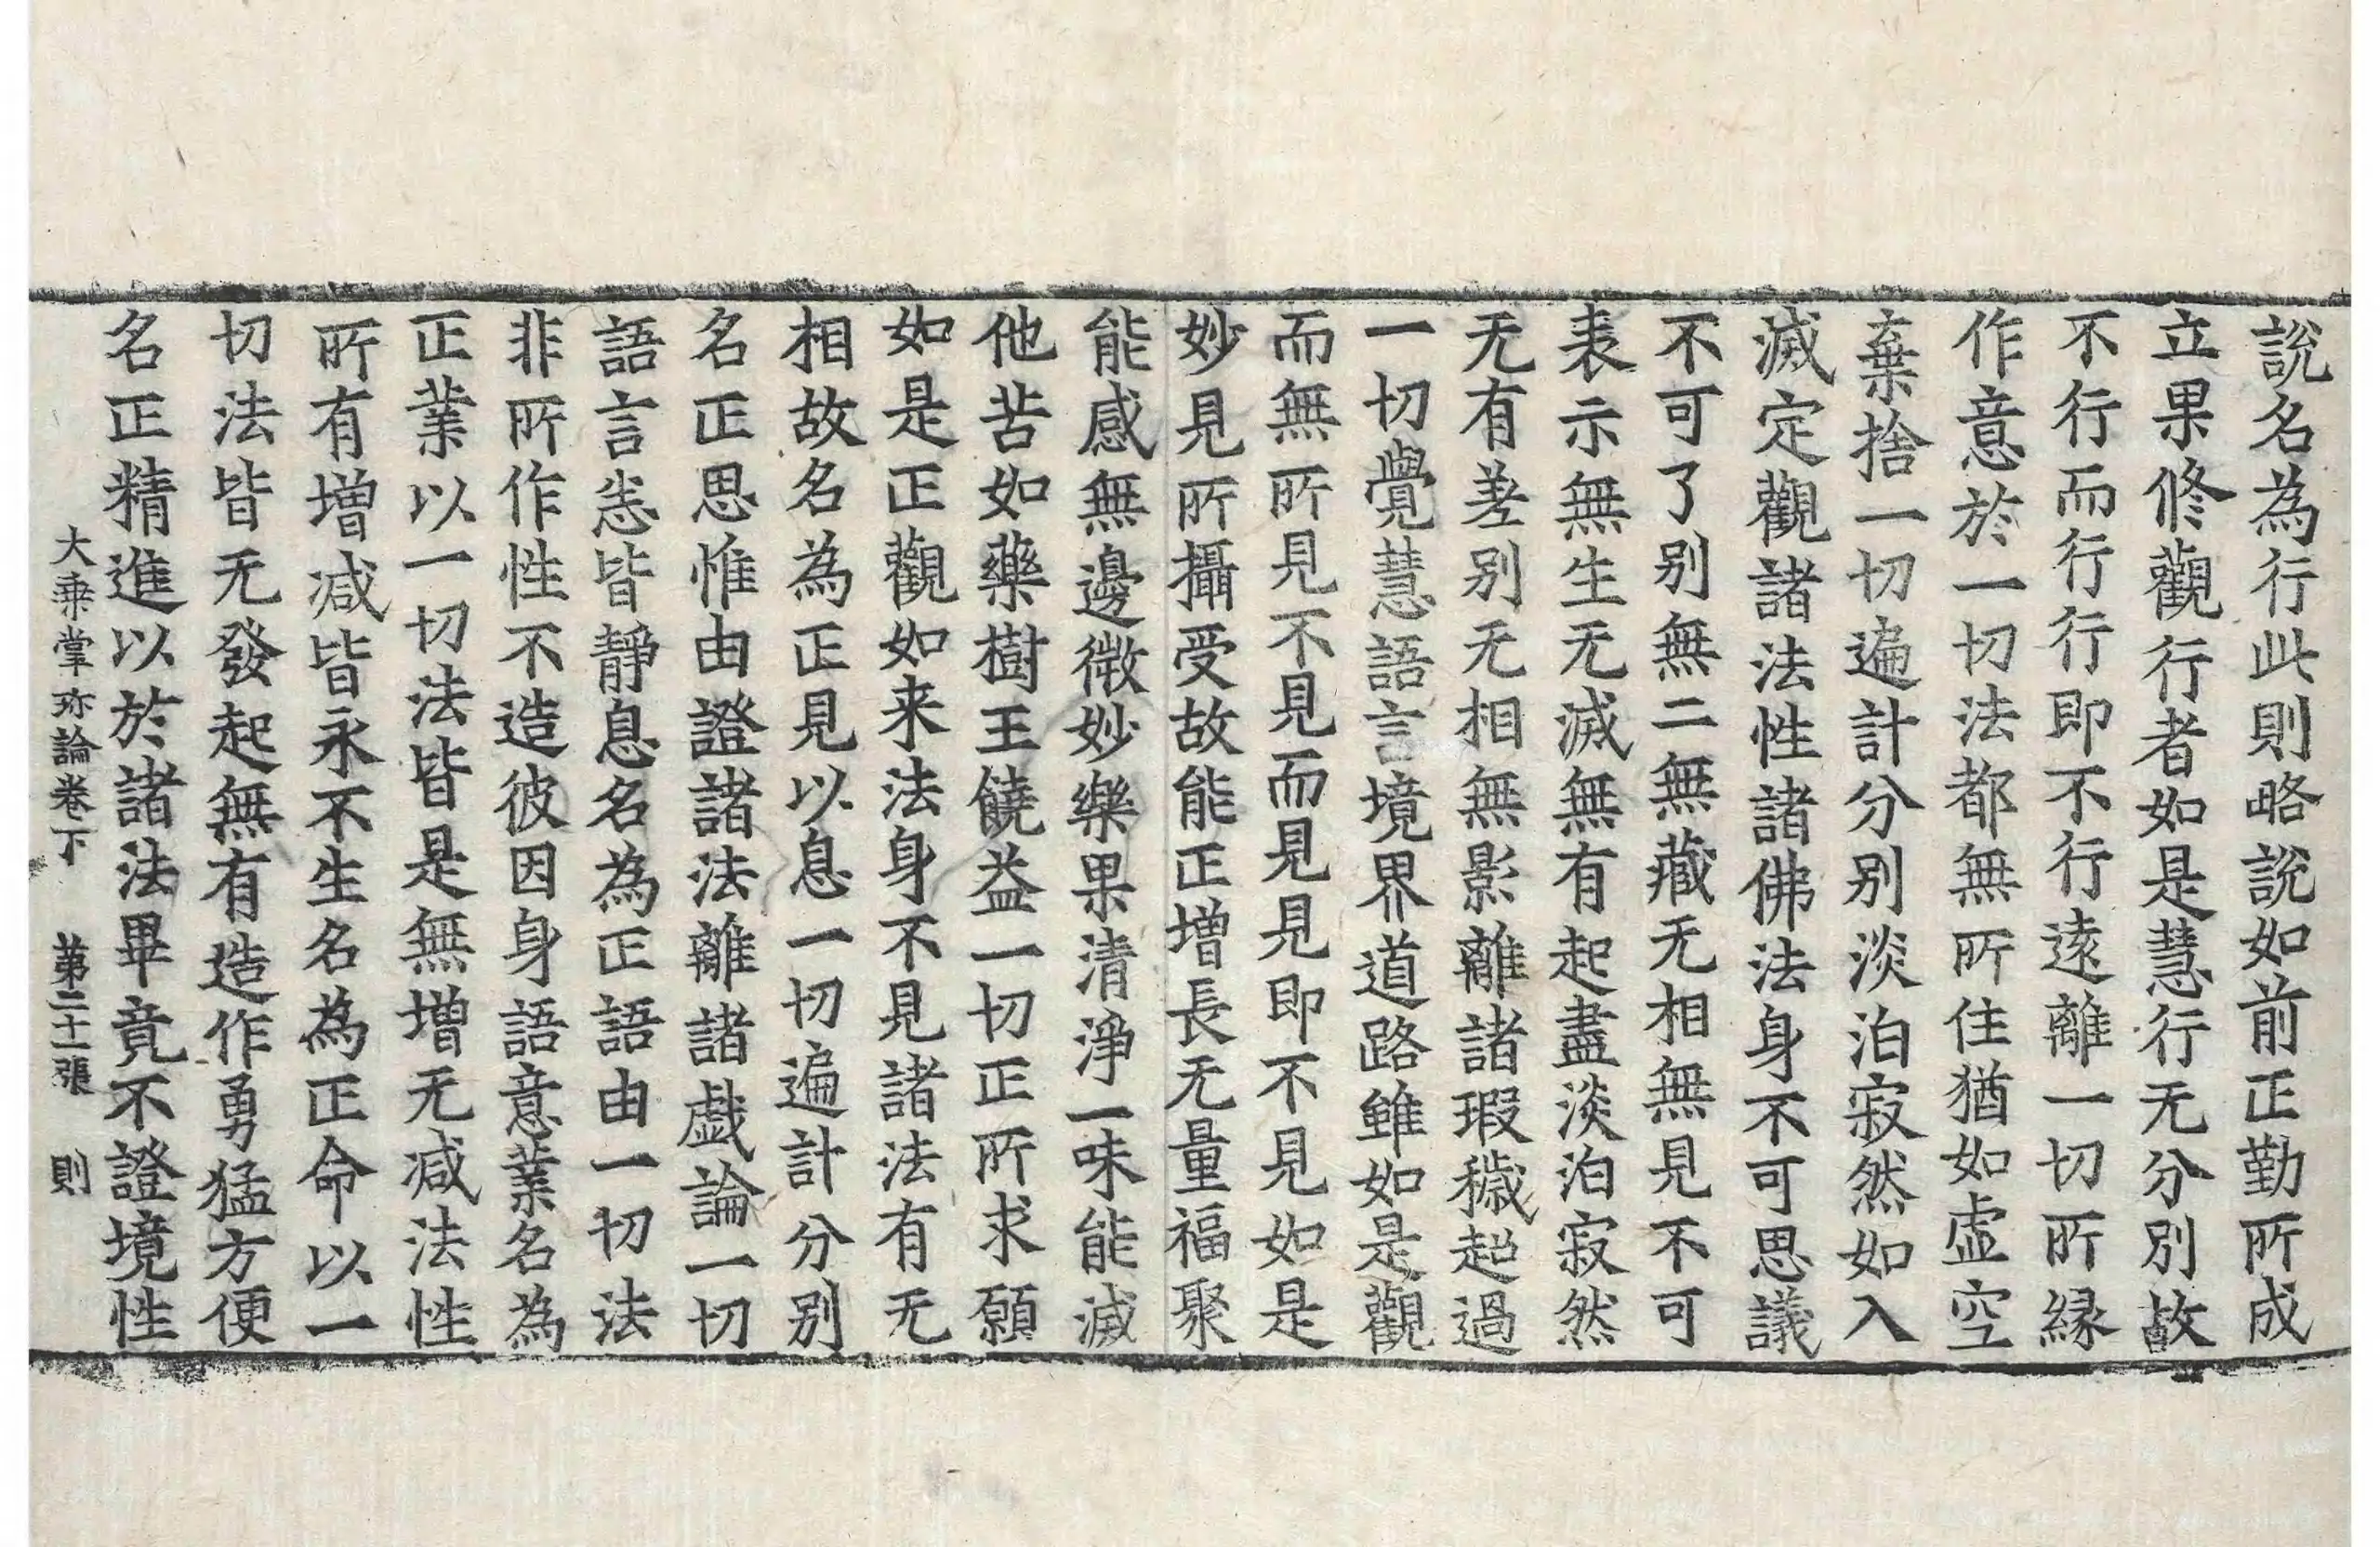 說名為行此則略說如前正勤所成
立果修觀行者如是慧行无分別故
不行而行行即不行遠離一切所縁
作意於一切法都無所住猶如虛空
棄捨一切遍計分别淡泊寂然如入
滅定觀諸法性諸佛法身不可思議
不可了别無二無藏无相無見不可
表示無生无滅無有起盡淡泊寂然
无有差别无相無影離諸瑕穢超過
一切覺慧語言境界道路雖如是觀
而無所見不見而見見即不見如是
妙見所攝受故能正增長无量福聚
能感無邊微妙樂果清淨一味能滅
他苦如藥樹王饒益一切正所求願
如是正觀如来法身不見諸法有无
相故名為正見以息一切遍計分别
名正思惟由證諸法離諸戱論一切
語言悉皆靜息名為正語由一切法
非所作性不造彼因身語意業名為
正業以一切法皆是無增无减法性
所有增减皆永不生名為正命以一
切法皆无發起無有造作勇猛方便
名正精進以於諸法畢竟不證境性
大乗掌珎論卷下　第二十一張　則